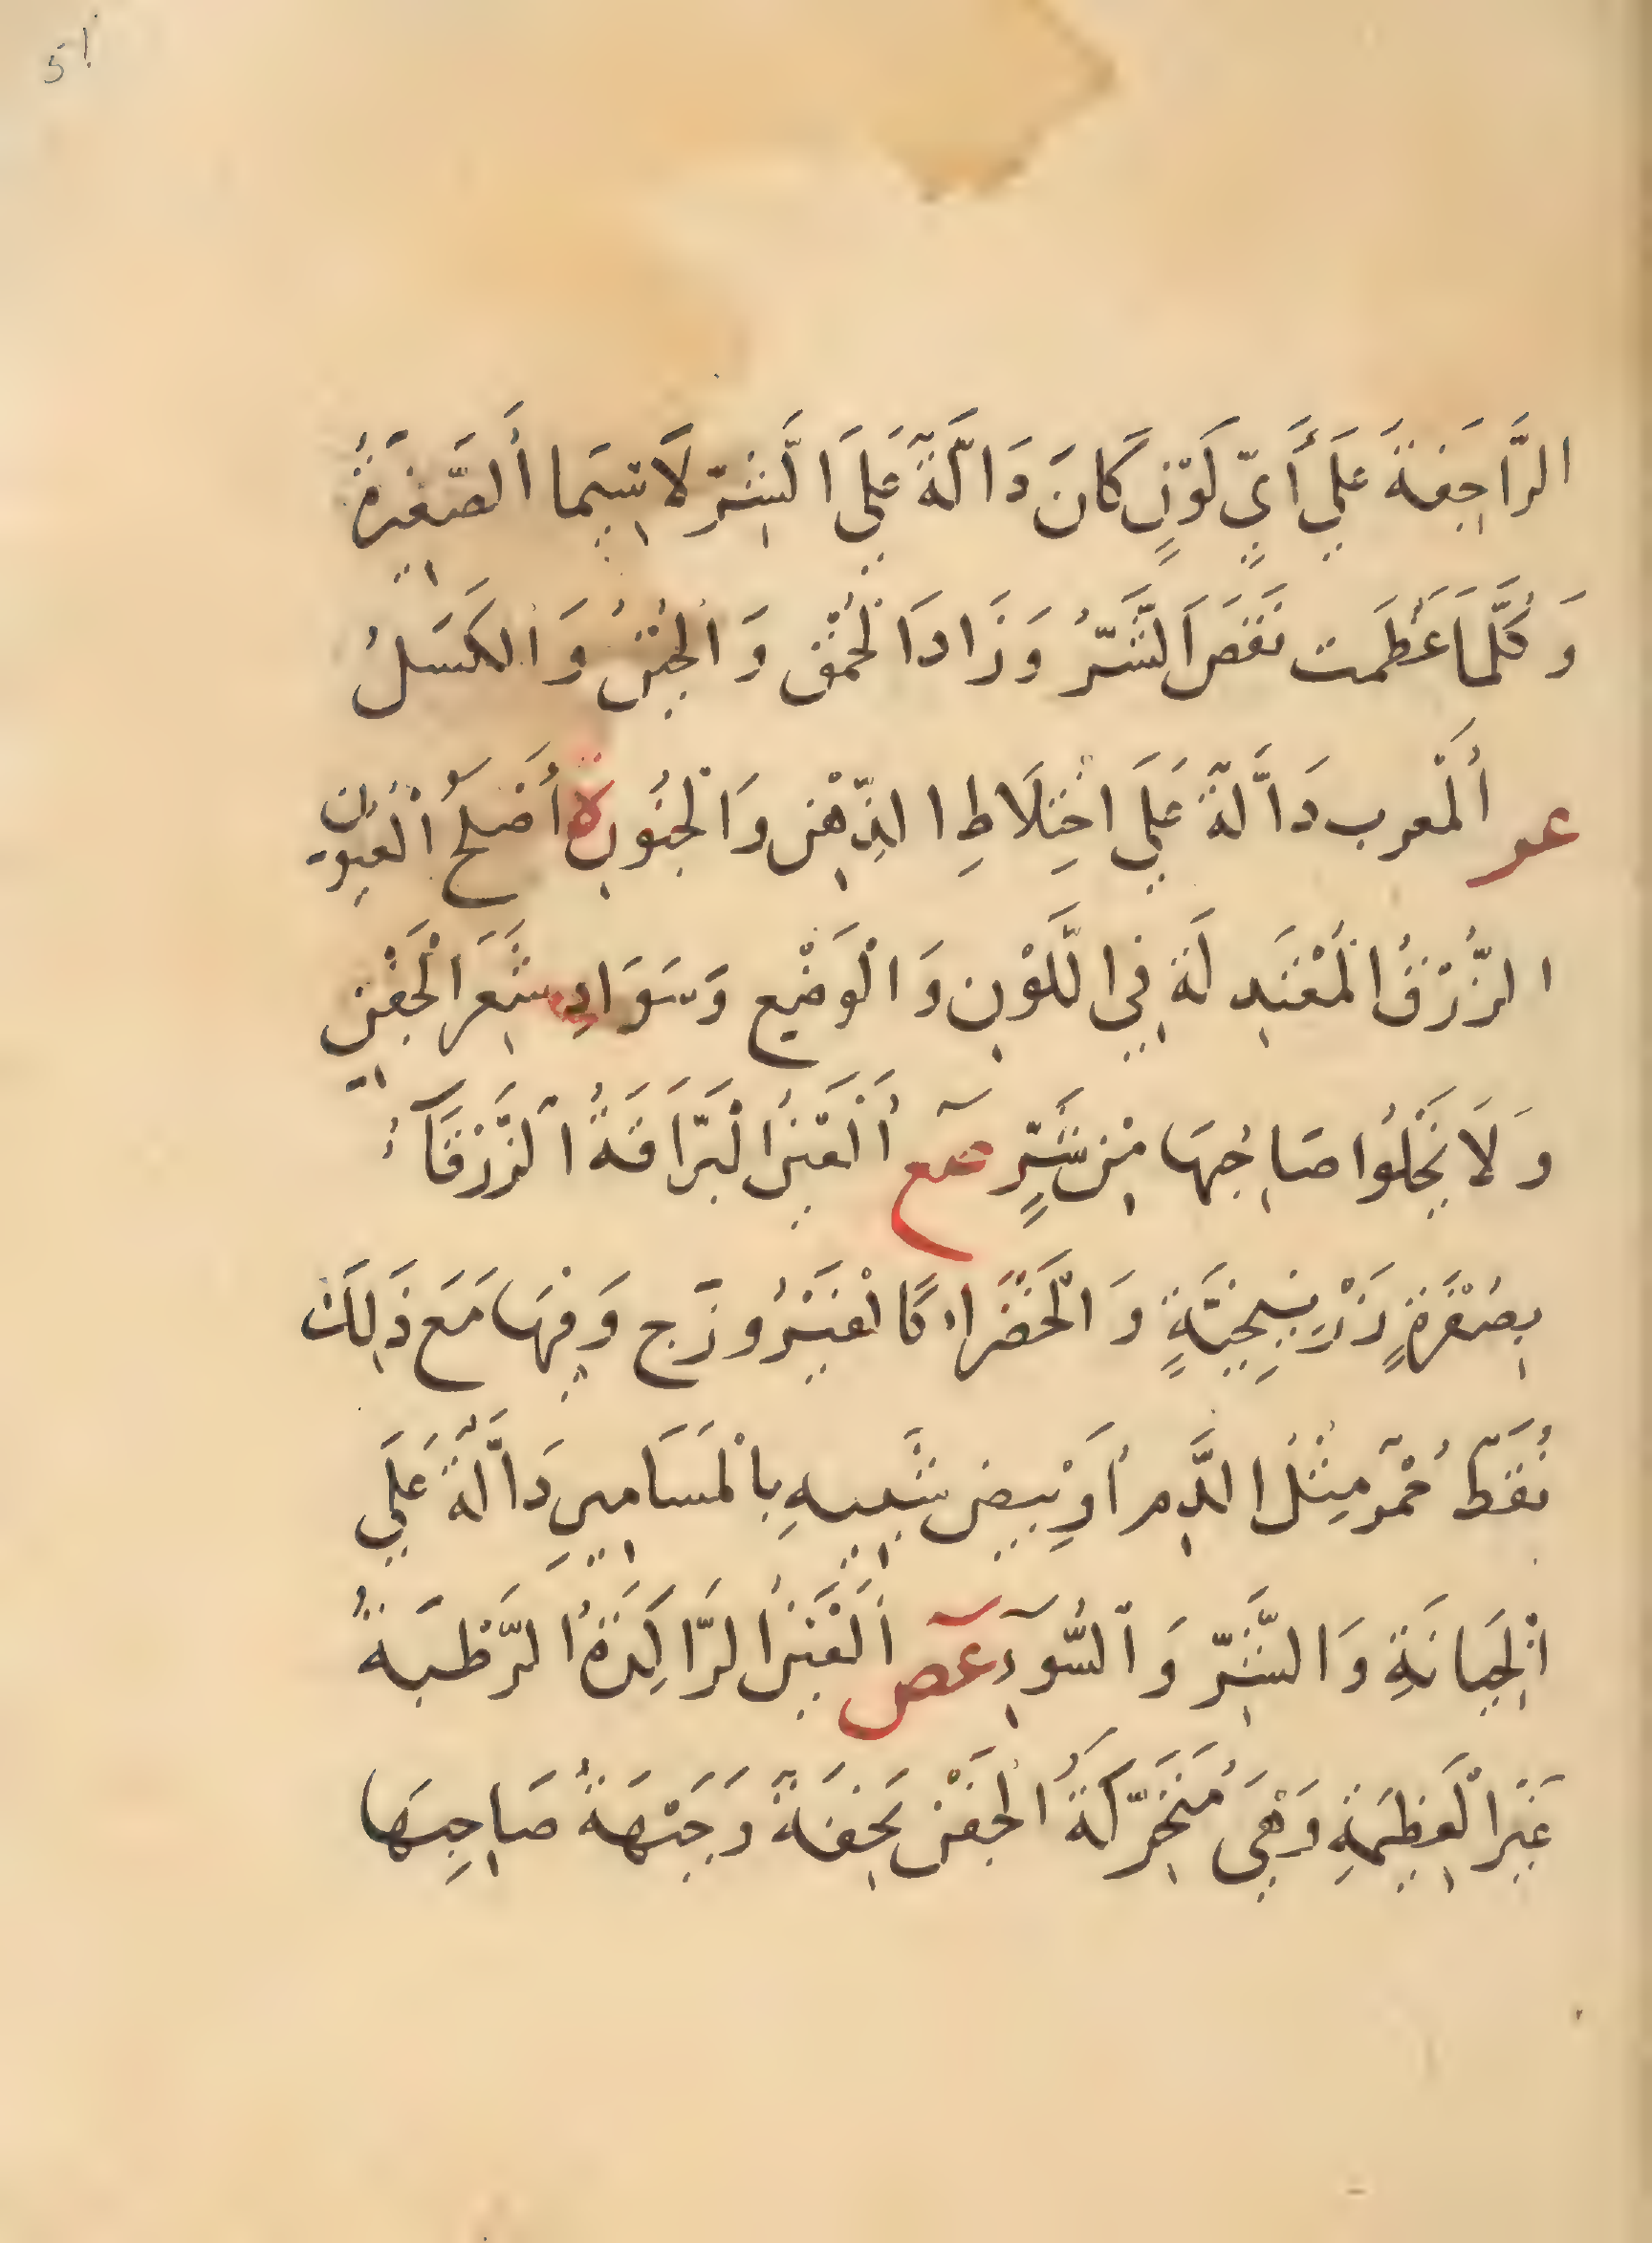 51
الرَّاجِفَةَ عَلَي أَيِّ لَوْنٍ كَانَ دَالَّةً عَلَي الشَّرِّ لَاسِيَمَا الصَّغِيرَةُ
وَ كُلَّمَا عَظُمَت نَقَصَ الشَّرُّ وَ زَادَ الْحُمْق وَ الْجُبْنُ وَ الكَسَلُ
عر اَلْمعرب دَالَّةً عَلَي اخْتِلَاطِ الذِّهْنِ وَ الْجُنُونِ ة أَصْلَحُ الْعُيُونِ
الزُّرْقُ الْمُعْتَدِ لَة فِي اللَّوْنِ وَ الْوَضْعِ وَسَوَادِ شَعَرِ الْجَفْنِ
وَ لَا يَخْلُوا صَاحِبُهَا مِنْ شَرٍّ صع اَلْعَيْنُ الْبَرَّاقَةُ الزَّرْقَآءُ
بِصُفْرَةٍ زَرْنِيخِيَّةٍ وَ الْخَضْرَاء كَالْفَيْرُوزَج وَفِيهَا مَعَ ذَلِكَ
نُقَطٌ حُمْرٌ مِثْلُ الدَّمِ أَوْ بِيض شَبِيهِ بِالْمَسَامِيرِ دَالَّةً عَلَي
الْجَبَانَةِ وَ الشَّرِّ وَ السُّوَءِ عص اَلْعَيْنُ الرَّاكِدَةُ الرَّطْبَةُ
غَيْرَ الْعَظِيمَةِ وَهْيَ مُتَحَرِّكَةُ الْجَفْنِ بِخِفَّةٍ وَجَبْهَةُ صَاحِبِهَا